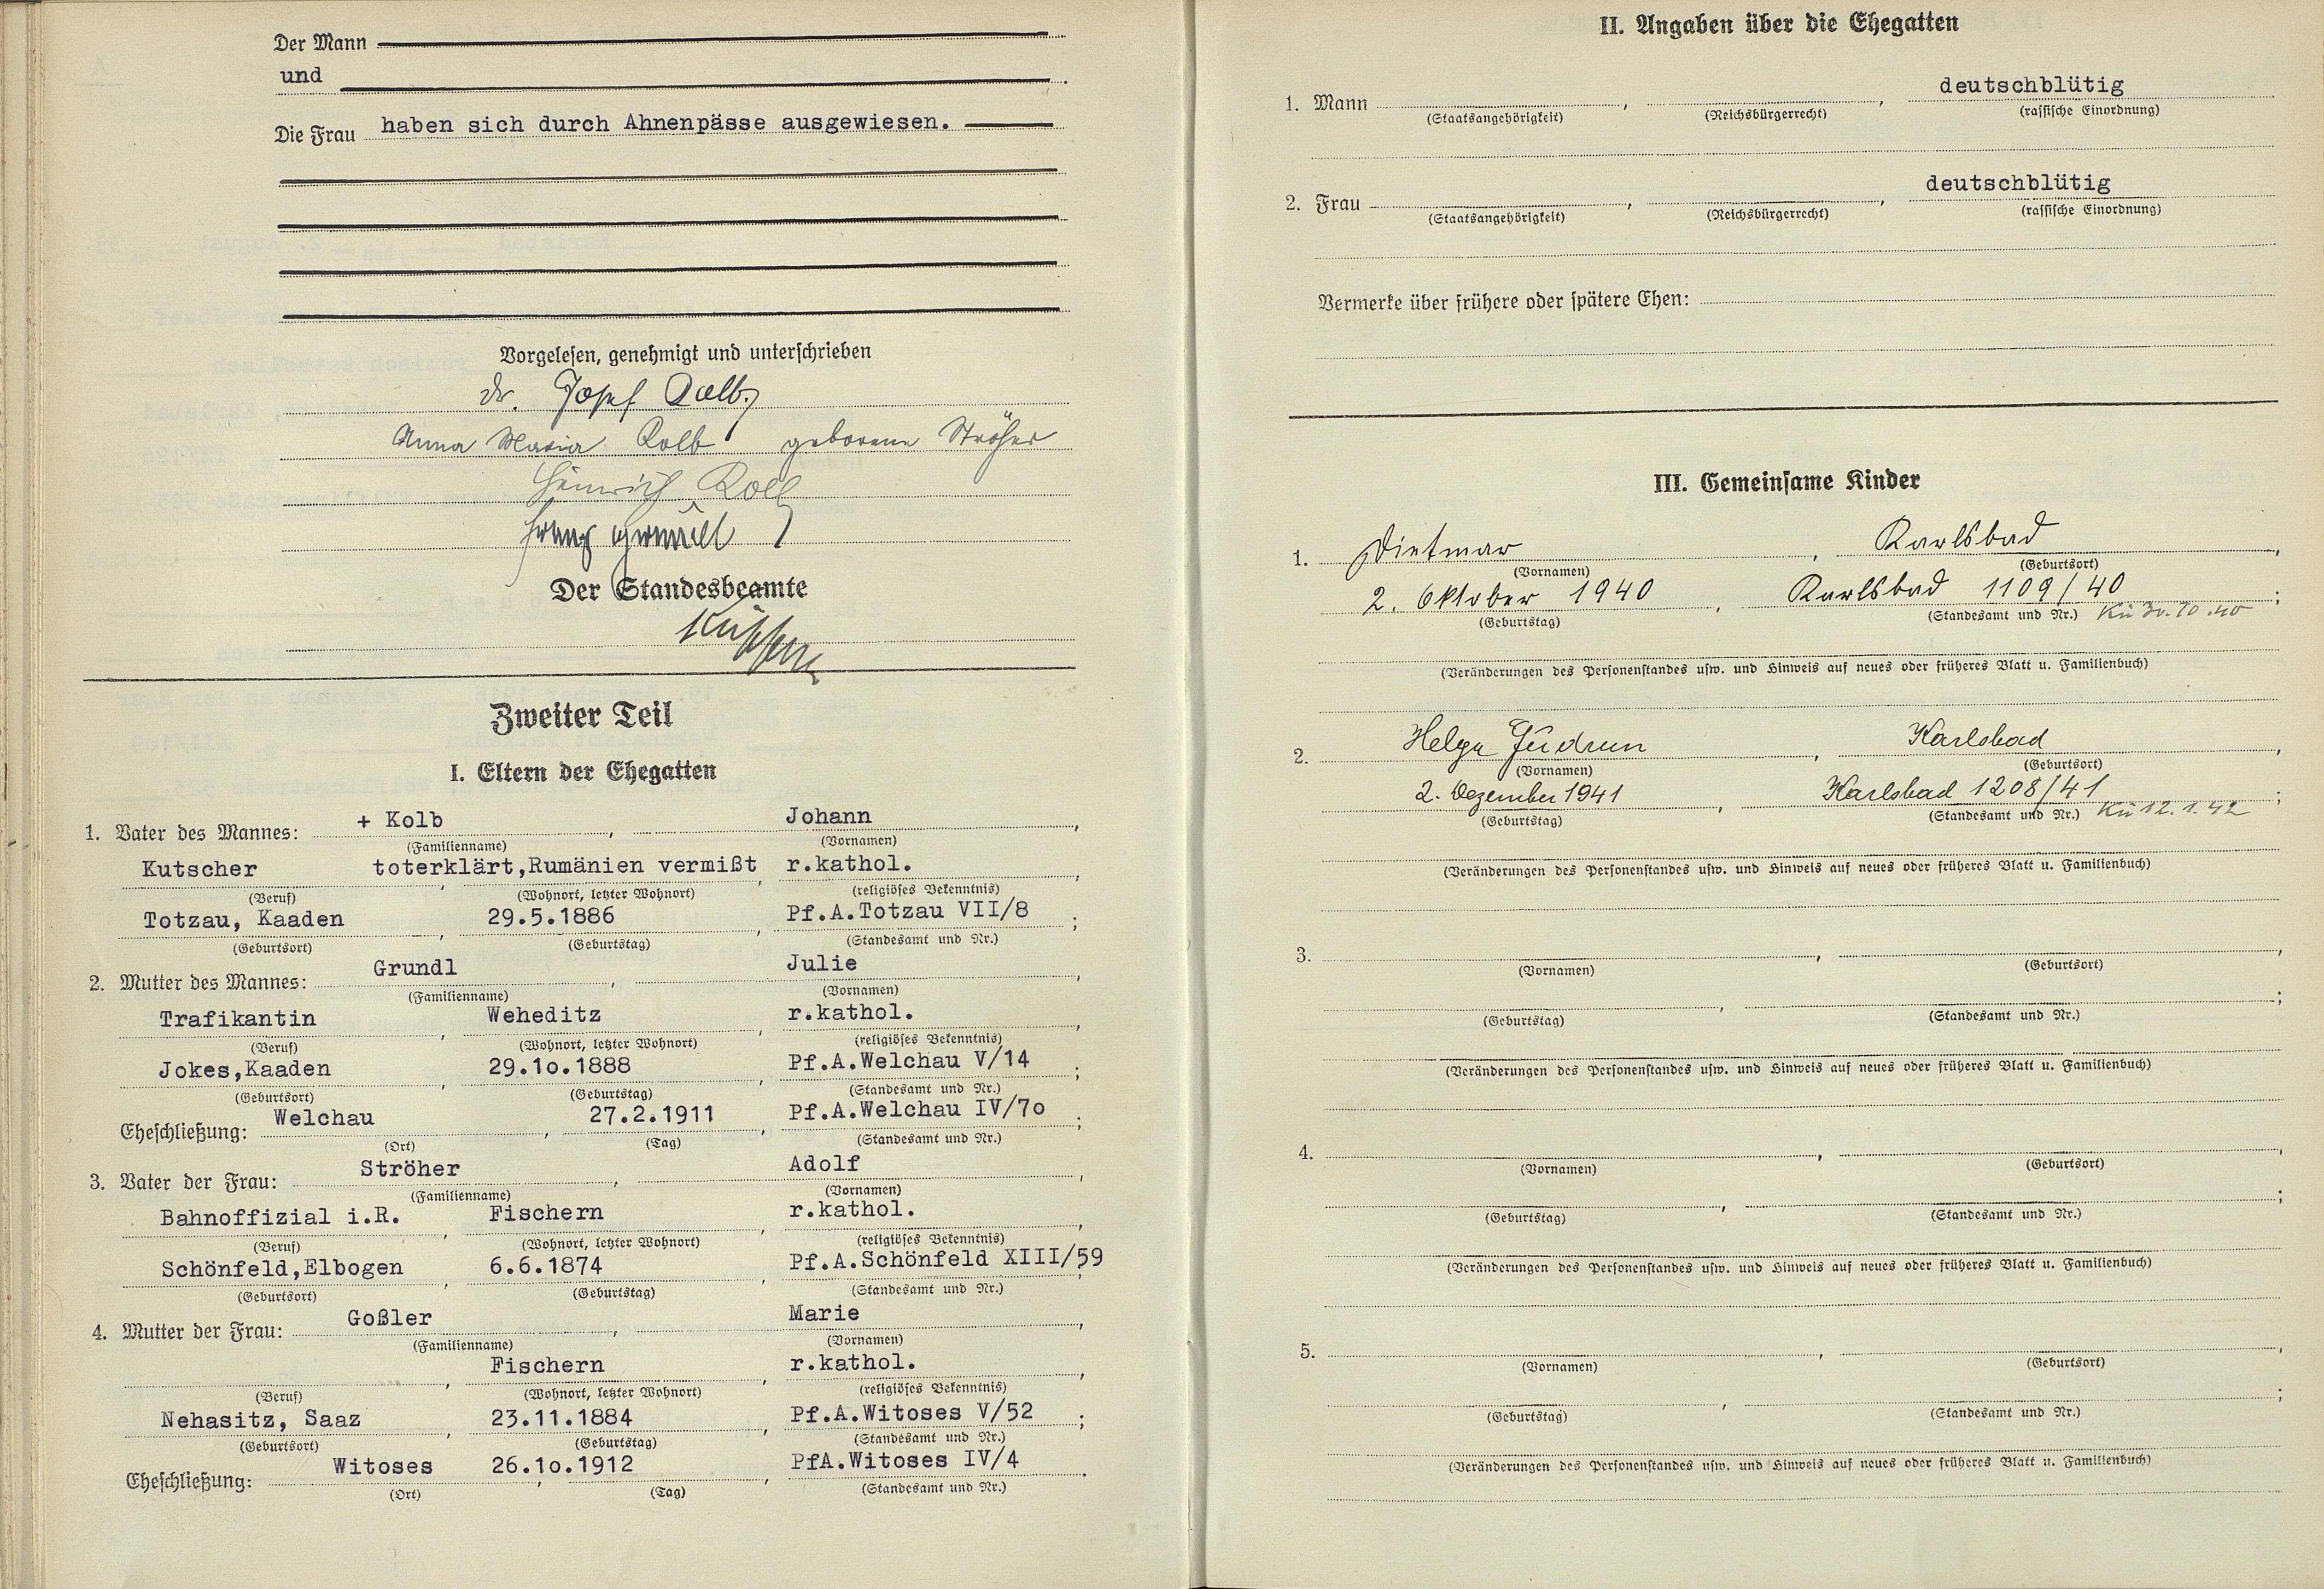 Der Mann
und
Die Frau haben sich durch Ahnenpässe ausgewiesen.
Vorgelesen, genehmigt und unterschrieben
Dr. Josef Kolb
Anna Maria Kolb geborene Ströher
Heinrich Kolb
Franz
Der Standesbeamte
Zweiter Teil
I. Eltern der Ehegatten
1. Vater des Mannes: + Kolb, Johann,
(Familienname) (Vornamen)
Kutscher toterklärt,Rumänien vermißt, r.kathol.,
(Beruf) (Wohnort, letzter Wohnort) (religiöses Bekenntnis)
Totzau, Kaaden, 29.5.1886, Pf.A.Totzau VII/8;
(Geburtsort) (Geburtstag) (Standesamt und Nr.)
2. Mutter des Mannes: Grundl, Julie,
(Familienname) (Vornamen)
Trafikantin, Weheditz, r.kathol.,
(Beruf) (Wohnort, letzter Wohnort) (religiöses Bekenntnis)
Jokes,Kaaden, 29.1o.1888, Pf.A.Welchau V/14;
(Geburtsort) (Geburtstag) (Standesamt und Nr.)
Eheschließung: Welchau, 27.2.1911, Pf.A.Welchau IV/7o;
(Ort) (Tag) (Standesamt und Nr.)
3. Vater der Frau: Ströher, Adolf,
(Familienname) (Vornamen)
Bahnoffizial i.R., Fischern, r.kathol.,
(Beruf) (Wohnort, letzter Wohnort) (religiöses Bekenntnis)
Schönfeld,Elbogen, 6.6.1874, Pf.A.Schönfeld XIII/59;
(Geburtsort) (Geburtstag) (Standesamt und Nr.)
4. Mutter der Frau: Goßler, Marie,
(Familienname) (Vornamen)
, Fischern, r.kathol.,
(Beruf) (Wohnort, letzter Wohnort) (religiöses Bekenntnis)
Nehasitz, Saaz, 23.11.1884, Pf.A.Witoses V/52;
(Geburtsort) (Geburtstag) (Standesamt und Nr.)
Eheschließung: Witoses, 26.1o.1912, PfA.Witoses IV/4.
(Ort) (Tag) (Standesamt und Nr.)
II. Angaben über die Ehegatten
1. Mann , , deutschblütig
(Staatsangehörigkeit) (Reichsbürgerrecht) (rassische Einordnung)
2. Frau , , deutschblütig
(Staatsangehörigkeit) (Reichsbürgerrecht) (rassische Einordnung)
Vermerke über frühere oder spätere Ehen:
III. Gemeinsame Kinder
1. Dietmar, Karlsbad,
(Vornamen) (Geburtsort)
2. Oktober 1940, Karlsbad 1109/40;
(Geburtstag) (Standesamt und Nr.) Kü 30.10.40
(Veränderungen des Personenstandes usw. und Hinweis auf neues oder früheres Blatt u. Familienbuch)
2. Helga Gudrun, Karlsbad,
(Vornamen) (Geburtsort)
2. Dezember 1941, Karlsbad 1208/41;
(Geburtstag) (Standesamt und Nr.) Kü 12.1.42
(Veränderungen des Personenstandes usw. und Hinweis auf neues oder früheres Blatt u. Familienbuch)
3. , ,
(Vornamen) (Geburtsort)
, ;
(Geburtstag) (Standesamt und Nr.)
(Veränderungen des Personenstandes usw. und Hinweis auf neues oder früheres Blatt u. Familienbuch)
4. , ,
(Vornamen) (Geburtsort)
, ;
(Geburtstag) (Standesamt und Nr.)
(Veränderungen des Personenstandes usw. und Hinweis auf neues oder früheres Blatt u. Familienbuch)
5. , ,
(Vornamen) (Geburtsort)
, ;
(Geburtstag) (Standesamt und Nr.)
(Veränderungen des Personenstandes usw. und Hinweis auf neues oder früheres Blatt u. Familienbuch)